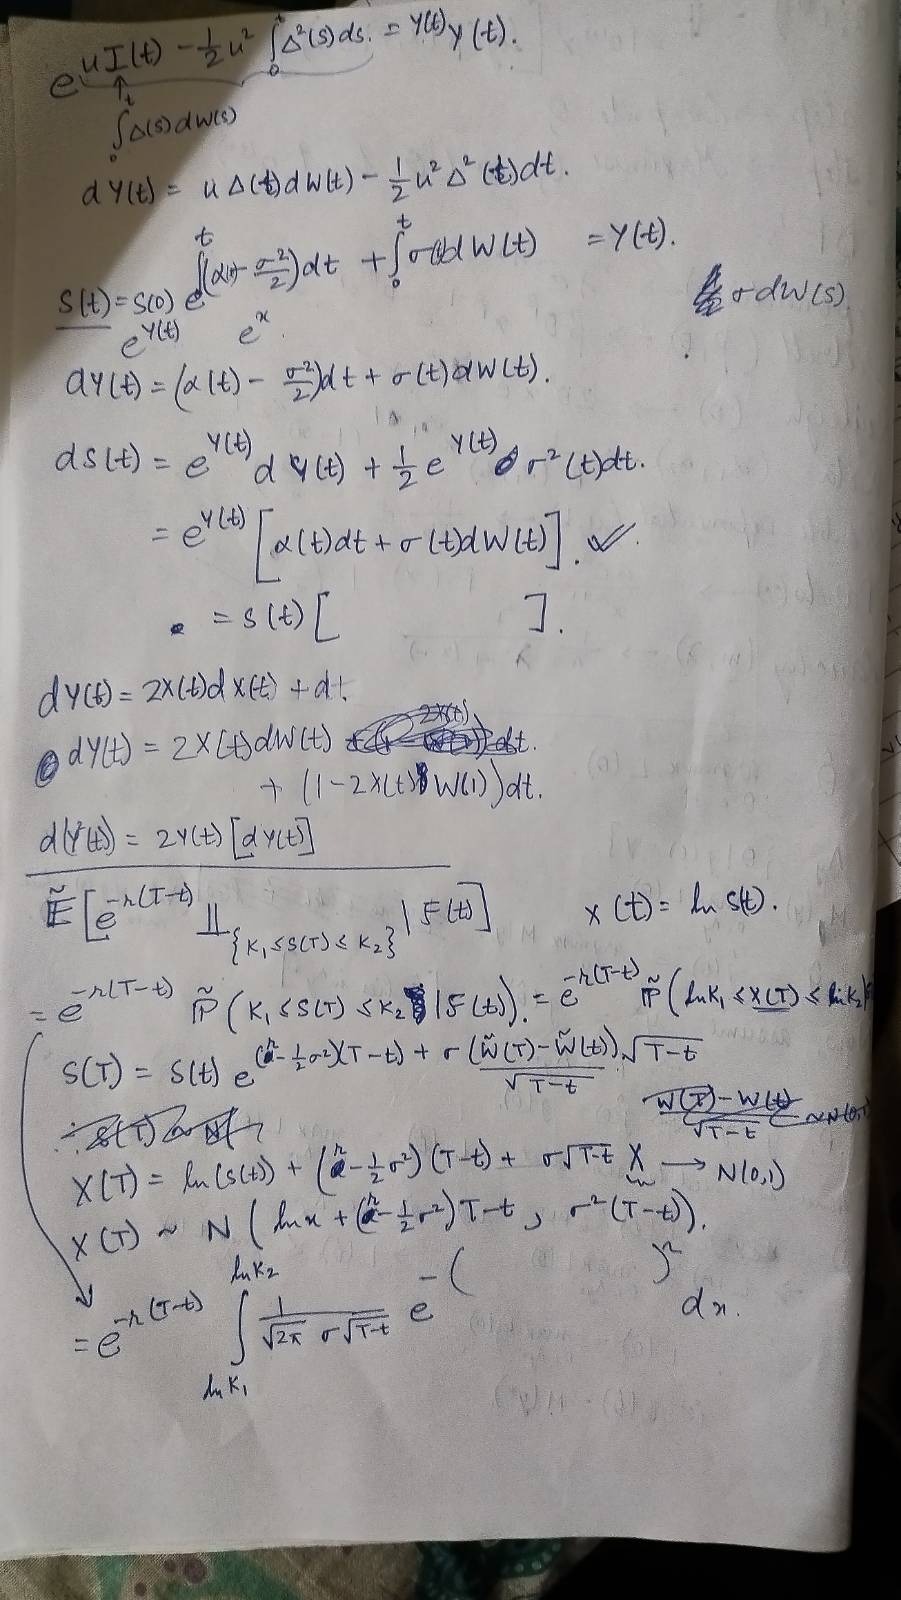 e^{uI(t) - 1/2 u² ∫₀ᵗ Δ²(s)ds} = Y(t) Y(t).
∫₀ᵗ Δ(s)dW(s)
dY(t) = uΔ(t)dW(t) - 1/2 u² Δ²(t)dt.
S(t) = S(0) e^{∫₀ᵗ(α(t) - σ²/2)dt + ∫₀ᵗ σ(t)dW(t)} = Y(t).
σdW(s)
e^{Y(t)} e^x.
dY(t) = (α(t) - σ²/2)dt + σ(t)dW(t).
dS(t) = e^{Y(t)} dY(t) + 1/2 e^{Y(t)} σ²(t)dt.
= e^{Y(t)} [α(t)dt + σ(t)dW(t)]. ✓.
= S(t) [ ].
dY(t) = 2X(t)dX(t) + dt.
dY(t) = 2X(t)dW(t)
+ (1 - 2X(t) W(1))dt.
d(Y²(t)) = 2Y(t) [dY(t)]
Ẽ[e^{-r(T-t)} 𝟙_{K₁ ≤ S(T) ≤ K₂} | F(t)] X(t) = ln S(t).
= e^{-r(T-t)} P̃(K₁ ≤ S(T) ≤ K₂ | F(t)). = e^{-r(T-t)} P̃(ln K₁ ≤ X(T) ≤ ln K₂)
S(T) = S(t) e^{(r - 1/2 σ²)(T-t) + σ (W̃(T) - W̃(t))/√(T-t) . √(T-t)}
X(T) = ln(S(t)) + (r - 1/2 σ²)(T-t) + σ√(T-t) X → N(0,1)
X(T) ~ N(ln x + (r - 1/2 σ²)T-t, σ²(T-t)).
= e^{-r(T-t)} ∫_{ln K₁}^{ln K₂} 1/(√2π σ√(T-t)) e^{-( )²} dx.